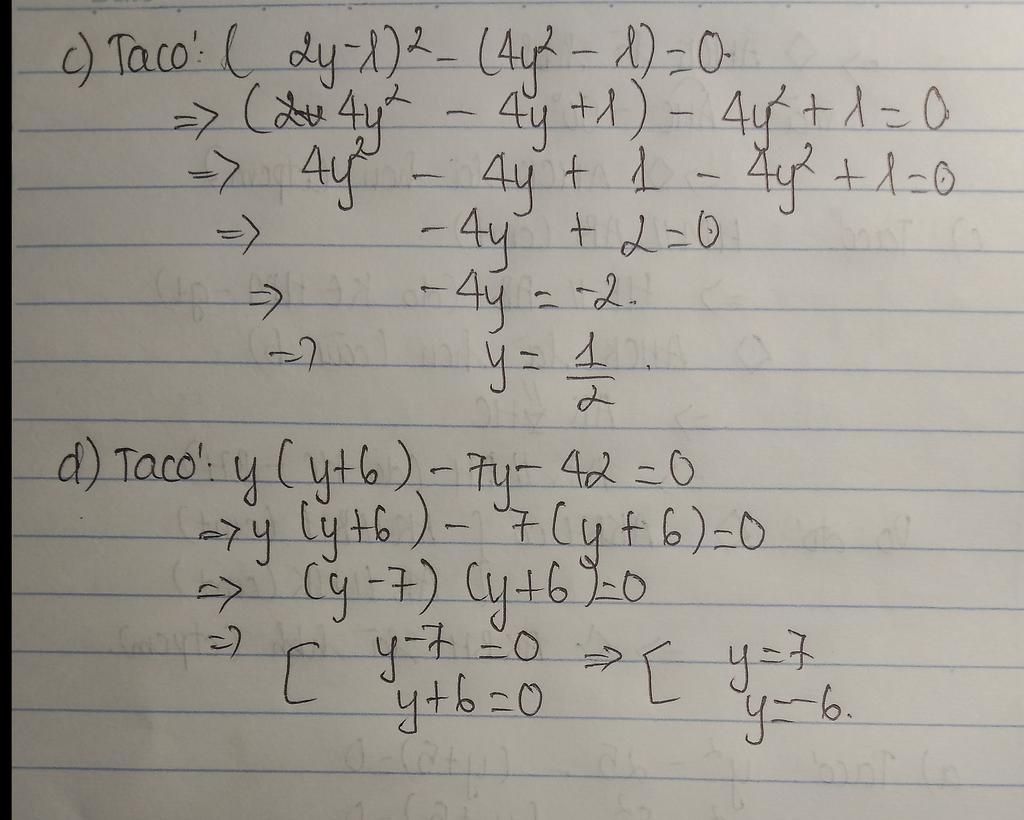 c) Ta có: (2y-1)² - (4y² - 1) = 0.
=> (4y² - 4y + 1) - 4y² + 1 = 0
=> 4y² - 4y + 1 - 4y² + 1 = 0
=> -4y + 2 = 0
=> -4y = -2.
=> y = 1/2.
d) Ta có: y(y+6) - 7y - 42 = 0
=> y(y+6) - 7(y+6) = 0
=> (y-7)(y+6) = 0
=> [ y-7 = 0 => [ y = 7
y+6 = 0 y = -6.